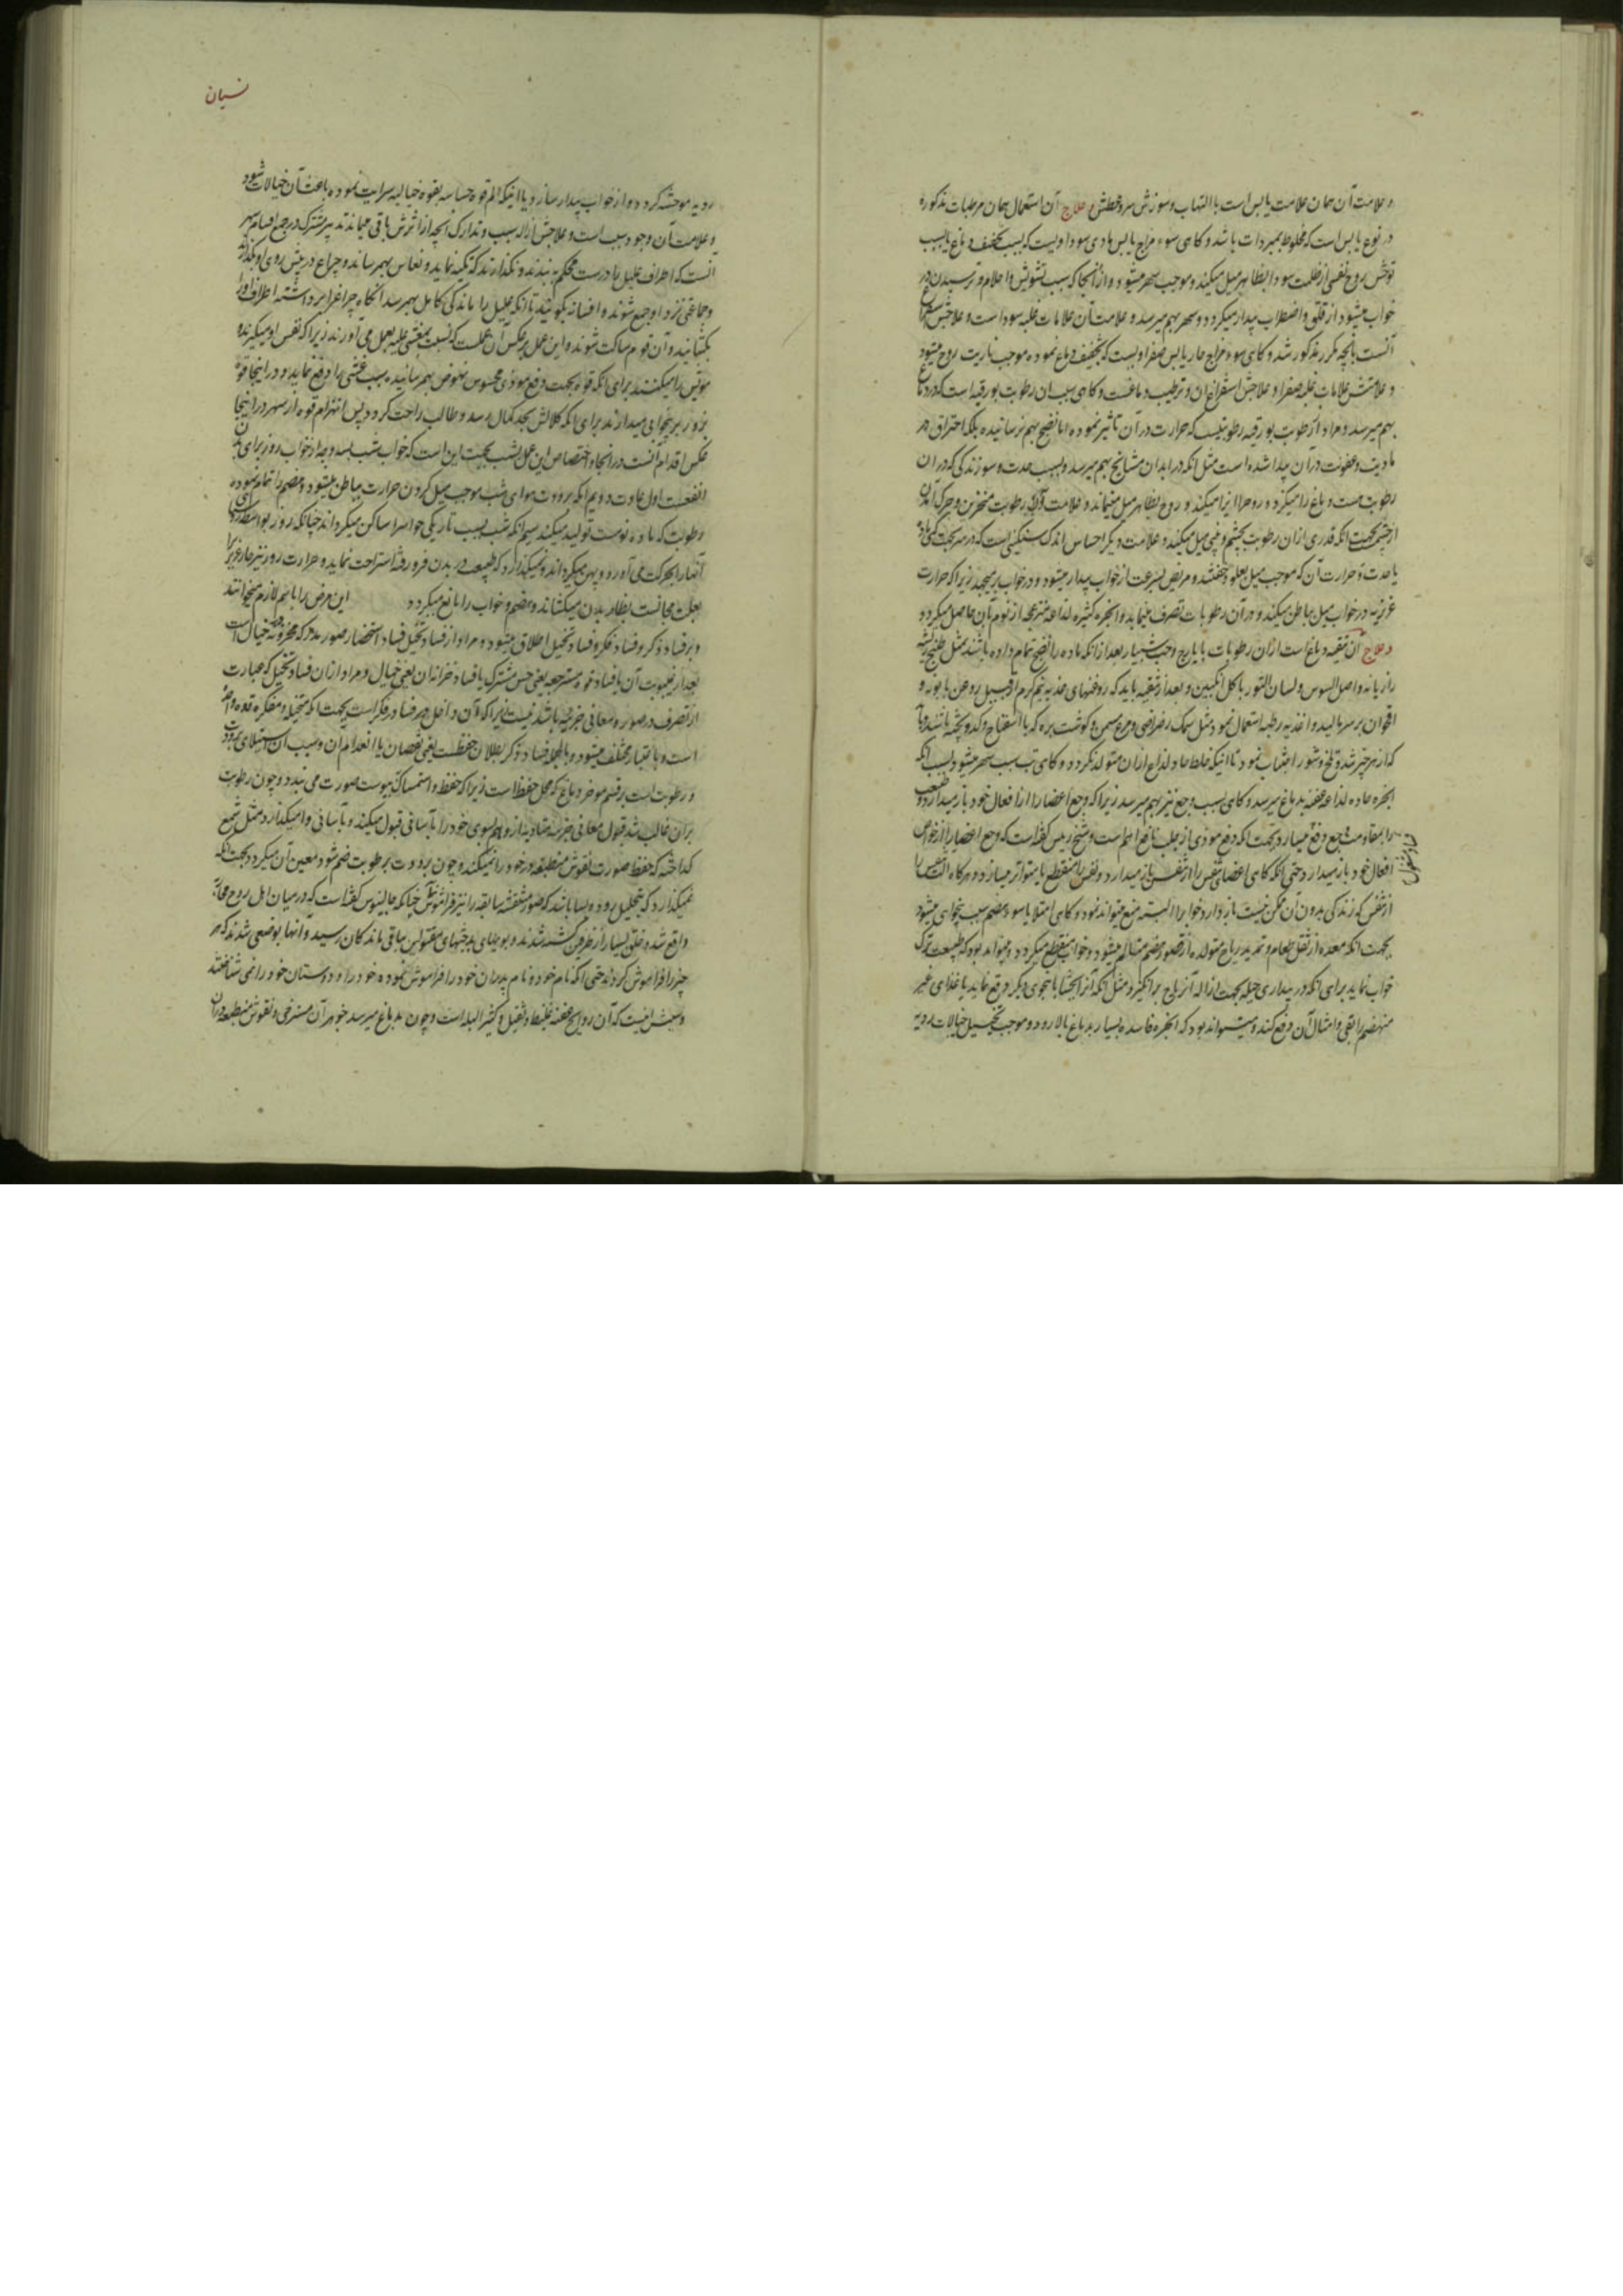 و علامت آن همان علامت یابس است با التهاب و سوزش سر و عطش و علاج آن استعمال همان مرطبات مذکوره
در نوع یابس است که مخلوط بمبردات باشد و کاهی سوء مزاج یابس مادی سوداویست که بسبب تجفیف دماغ یا بسبب
توحش روح نفسی از ظلمت سودا بظاهر میل میکند و موجب سهر میشود و از آنجا که سبب تشویش و احلام و ترسیدن در
خواب میشود از قلق و اضطراب بیدار میکردد و سهر بهم میرسد و علامت آن علامات غلبه سودا است و علاجش
آنست بآنچه مکرر مذکور شد و کاهی سوء مزاج حار یابس صفراویست که تجفیف دماغ نموده موجب ناریت روح میشود
و علامتش علامات غلبه صفرا و علاجش استفراغ آن و ترطیب دماغست و کاهی سبب آن رطوبت بورقیه است که در دماغ
بهم میرسد و مراد از رطوبت بورقیه رطوبتیست که حرارت در آن تاثیر نموده اما نضج بهم نرسانیده بلکه احتراق در
مادیت و عفونت در آن پیدا شده است مثل آنکه در ابدان مشایخ بهم میرسد و بسبب حدت و سوزندکی که در آن
رطوبت هست دماغ را میکزد و روح را ایذا میکند و روح بظاهر میل مینماند و علامت آن رطوبت منخرین و چرک
از چشم بجهت آنکه قدری از آن رطوبت بچشم و بینی میل میکند و علامت دیکر احساس اندک سنکینی است که در سر بجهت کمی ماده
یا حدت و حرارت آن که موجب میل بعلو و خفتشد و مریض بسرعت از خواب بیدار میشود و در خواب بر میجهد زیرا که حرارت
غریزیه در خواب میل بباطن میکند و در آن رطوبات تصرف مینماید و ابخره کثیره لذاعه منزعجه از نوم بآن حاصل میکردد
و علاج آن تنقیه دماغ است از آن رطوبات بایارج و حب شبیار بعد از آنکه ماده را نضج تمام داده باشند بمثل طبیخ
رازیانه و اصل السوس و لسان الثور با کل انکبین و بعد از تنقیه باید که روغنهای عذبه نیم کرم از قبیل روغن بابونه و
اقحوان بر سر مالید و اغذیه رطبه استعمال نمود مثل سمک رضراضی و مرغ مسمن و کوشت بره که با اسفناج و کدو پخته باشند و
که از هر چیز شور و تلخ و شور اجتناب نمود تا اینکه خلط حاد لذاع از آن متولد نکردد و کاهی تب سبب سهر میشود بسبب آنکه
ابخره حاده لذاعه عفنه بدماغ میرسد و کاهی بسبب وجع نیز بهم میرسد زیرا که وجع اعضا را از افعال خود باز میدارد و طبیعت
را بمقاومت وجع و دفع میدارد بجهت آنکه دفع موذی از جلب نافع اهم است و شیخ رئیس کفته است که وجع اعضا را از خواص
افعال خود باز میدارد حتی آنکه کاهی اعضای تنفس را از تنفس باز میدارد و نفس را منقطع یا متواتر میسازد و هر کاه
از تنفس که زندکی بدون آن ممکن نیست باز دارد خواب را البته منع میتواند نمود و کاهی امتلا یا سوء هضم سبب بیخوابی میشود
بجهت آنکه معده از ثقل طعام و تمدید ریاح متولده از قصور هضم متالم میشود و خواب منقطع میکردد و میتواند بود که طبیعت ترک
خواب نماید برای آنکه در بیداری حیله بجهت ازاله آن برانکیزد مثل آنکه آنرا بجشا یا بنحوی دیکر دفع نماید یا غذای غیر
منهضم را بقی و امثال آن دفع کند و میتواند بود که ابخره فاسده بسیار بدماغ بالا رود و موجب تخییل خیالات ردیه
نسیان
ردیه موحشه کردد و از خواب بیدار سازد یا اینکه الم قوه حساسه بقوه خیالیه سرایت نموده باعث آن خیالات شود
و علامت آن وجود سبب است و علاجش ازاله سبب و تدارک آنچه از اثرش باقی میماند تدبیر مشترک در جمیع اقسام سهر
آنست که اطراف علیل را درست محکم به بندند و نکذارند که تکیه نماید و نعاس بهم رساند و چراغ در پیش روی او بکذارند
و جماعتی نزد او جمع شوند و افسانه بکویند تا آنکه علیل را ماندکی کامل بهم رسد آنکاه چراغ را برداشته اطراف او را
بکشایند و آن قوم ساکت شوند و این عمل بر عکس آن عملست که نسبت بمغشی علیه بعمل می آورند زیرا که نفس او میکیرند و
مویش را میکنند برای آنکه قوه بجهت دفع موذی محسوس نهوض بهم رسانیده سبب غشی را دفع نماید و در اینجا قوه
بزور بر بیخوابی میدارند برای آنکه کلالش بحد کمال رسد و طالب راحت کردد پس انهزام قوه از سهر در اینجا
عکس اقدام آنست در آنجا و اختصاص این عمل بشب بجهت این است که خواب شب بسه وجه از خواب روز برای بدن
انفعست اول عادت دویم آنکه برودت هوای شب موجب میل کردن حرارت بباطن میشود و هضم را تمام نموده
رطوبت که ماده نومست تولید میکند سیم آنکه شب بسبب تاریکی حواس را ساکن میکرداند چنانکه روز بواسطه روشنی
آنها را بحرکت می آورد و پهن میکرداند و نمیکذارد که طبیعت در بدن فرو رفته استراحت نماید و حرارت روز نیز حار غریزیرا
بعلت مجانست بظاهر بدن میکشاند و هضم و خواب را مانع میکردد این مرض را باسم لازم میخوانند
و بر فساد ذکر و فساد فکر و فساد تخیل اطلاق میشود و مراد از فساد تخیل فساد استحضار صور مدرکه مخزونه خیال است
بعد از غیبوبت آن یا فساد قوه مسترجعه یعنی حس مشترک یا فساد خزانه آن یعنی خیال و مراد از آن فساد تخیل که عبارت
از تصرف در صور و معانی جزئیه باشد نیست زیرا که آن داخل در فساد فکر است بجهت آنکه متخیله و متفکره قوه واحده
است و باعتبار مختلف میشود و بالجمله فساد ذکر بطلان حفظست یعنی نقصان یا انعدام آن و سبب آن استیلای برودت
و رطوبت است بر قسم موخر دماغ که محل حفظ است زیرا که حفظ و استمساک بیبوست صورت می بندد و چون رطوبت
بر آن غالب شد قبول معانی جزئیه متادیه از وهم بسوی خود را بآسانی قبول میکند و بآسانی وامیکذارد مثل شمع
کداخته که حفظ صورت نقوش منطبعه در خود را نمیکند و چون برودت برطوبت ضم شود معین آن میکردد بجهت آنکه
نمیکذارد که بتحلیل رود و بسا باشد که صور منقشه سابقه را نیز فراموش چنانکه جالینوس کفته است که در میان اهل روح محاربه
واقع شد و خلق بسیار از طرفین کشته شدند و بویهای بد جثهای مقتولین بباقی ماندکان رسید و آنها بوضعی شدند که هر
چیز را فراموش کردند حتی آنکه نام خود و نام پدران خود را فراموش نموده خود را و دوستان خود را نمی شناختند
و سببش اینست که آن روایح عفنه غلیظ و ثقیل و کثیر البله است و چون بدماغ میرسد جوهر آن مسترخی و نقوش منطبعه در آن